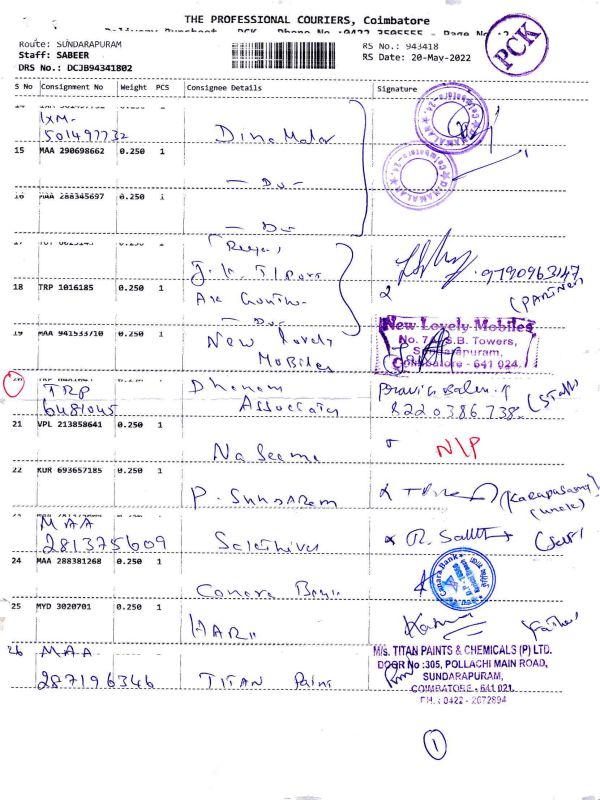 THE PROFESSIONAL COURIERS, Coimbatore
PCK
Route: SUNDARAPURAM
Staff: SABEER
DRS No.: DCJB94341802
RS No.: 943418
RS Date: 20-May-2022
S No Consignment No Weight PCS Consignee Details Signature
IXM-
501497732 Dinamalar
15 MAA 290698662 0.250 1
- Do -
16 MAA 288345697 0.250 1
- Do -
J.K. Tiles
18 TRP 1016185 0.250 1
9790963147
(PARTNER)
- Do -
19 MAA 941533710 0.250 1
New Lovely
Mobiles
New Lovely Mobiles
S.B. Towers,
Sundarapuram,
Coimbatore - 641 024.
20 TRP
6481045
Associates
8220386738 (Staff)
21 VPL 213858641 0.250 1
Naseema
N/P
22 KUR 693657185 0.250 1
P. SUNDARAM
(uncle)
MAA
281375609
(Self)
24 MAA 288381268 0.250 1
Canara Bank
Canara Bank
25 MYD 3020701 0.250 1
HARI
(Father)
26 MAA
287196346 TITAN Paints
M/s. TITAN PAINTS & CHEMICALS (P) LTD.
DOOR No :305, POLLACHI MAIN ROAD,
SUNDARAPURAM,
COIMBATORE - 641 021.
PH.: 0422 - 2672894
1